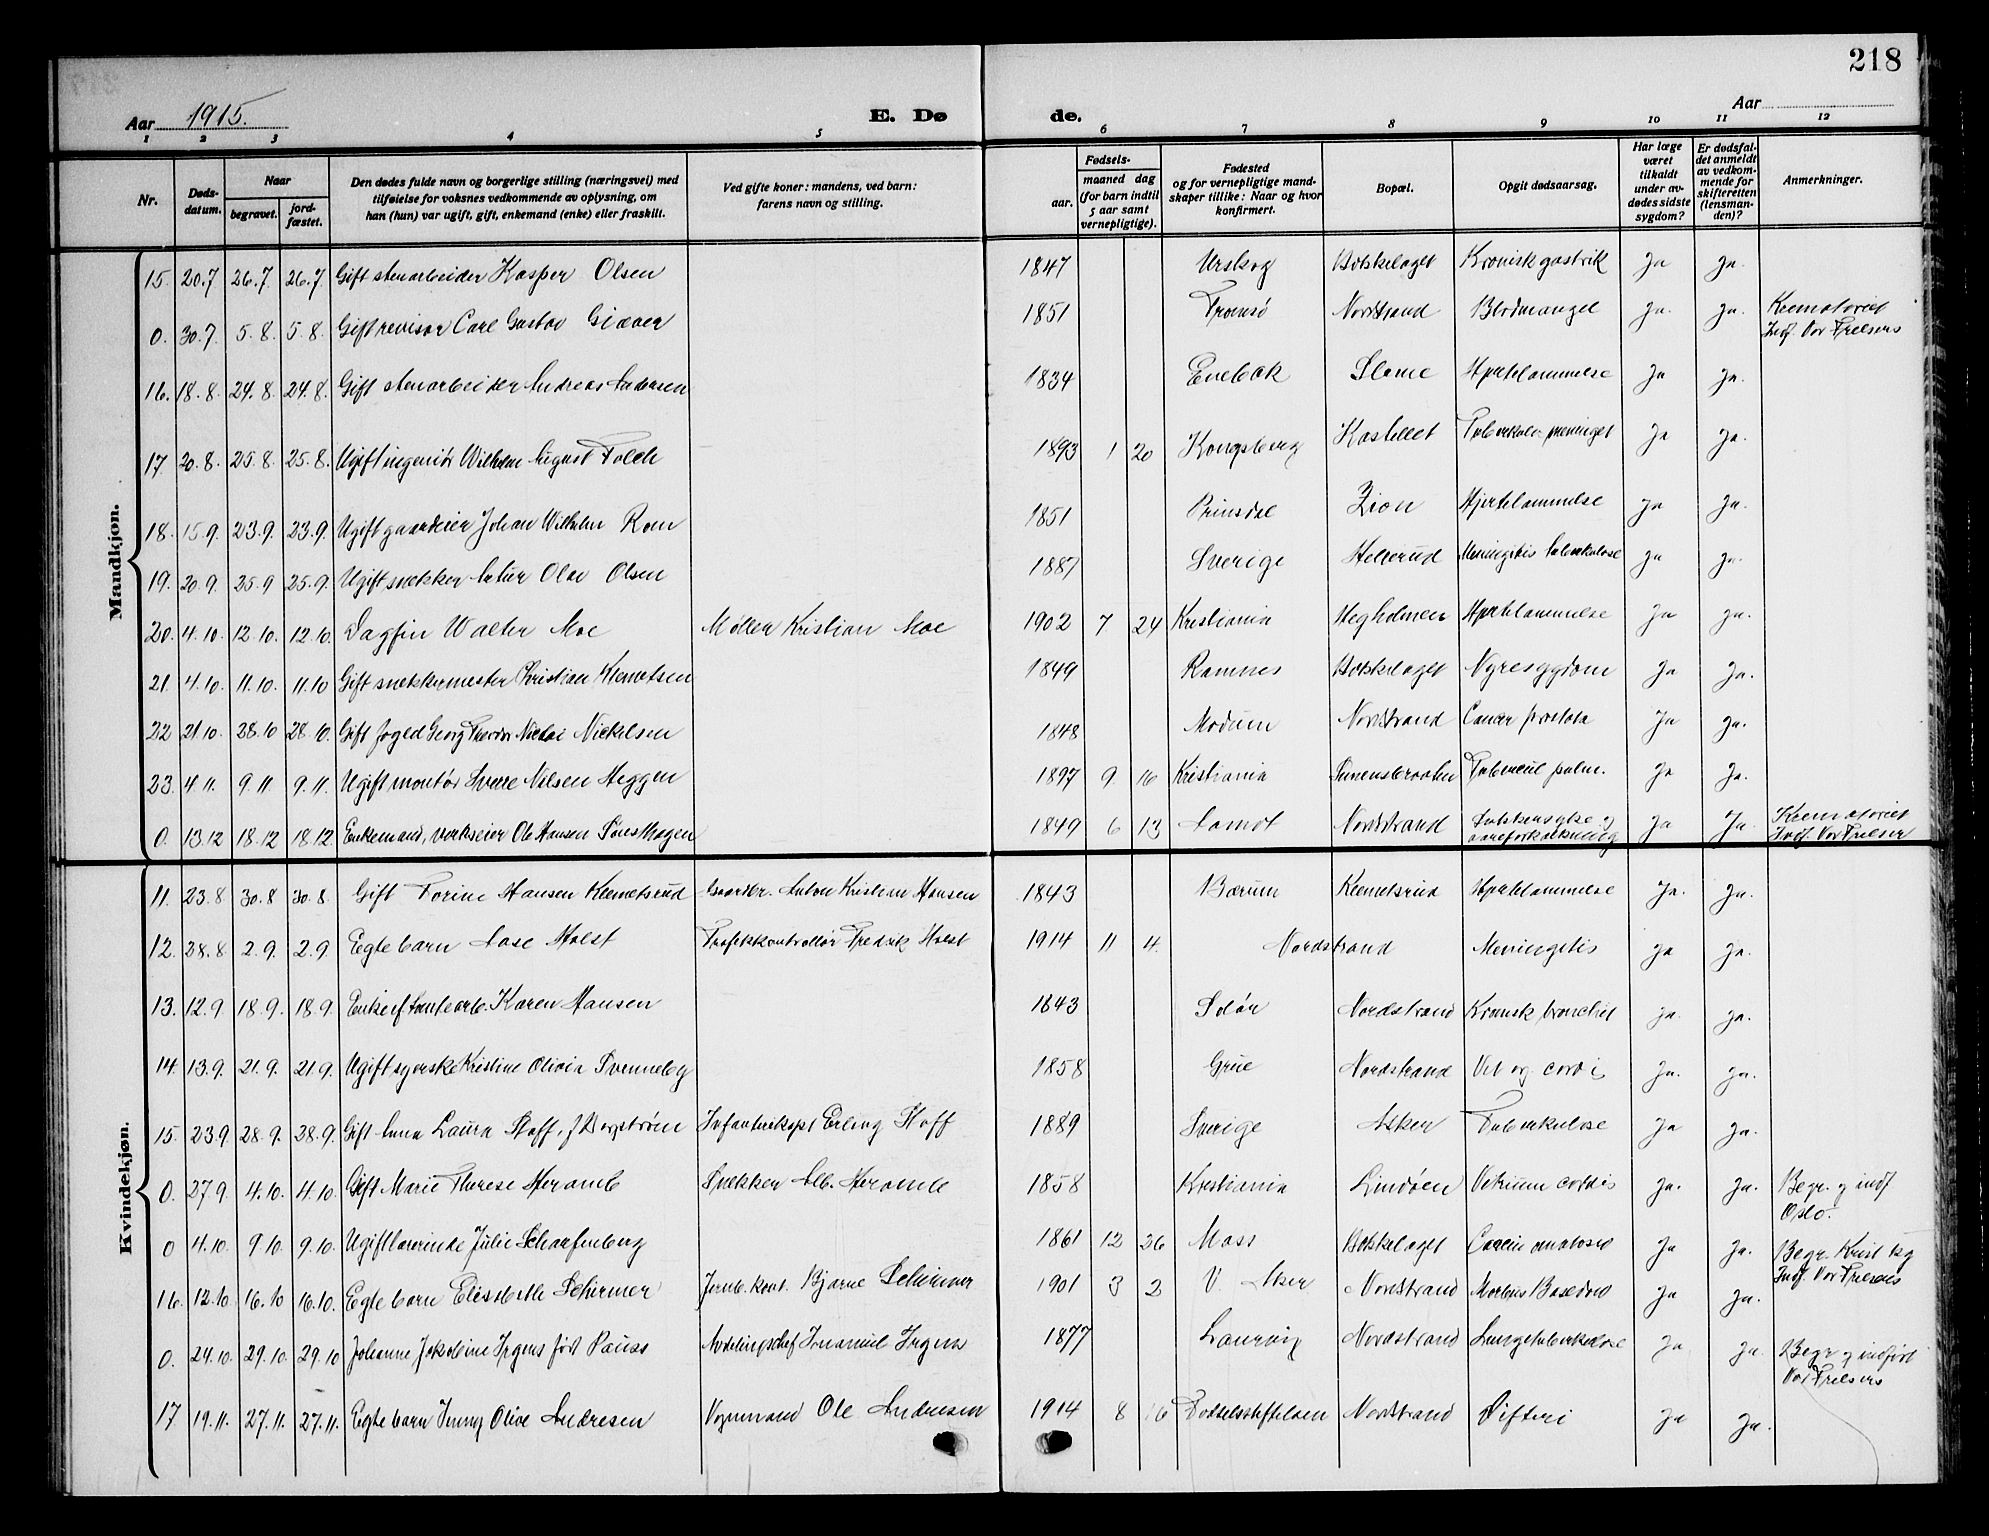 218
Aar 1915.
E. Dø
de.
Aar
1 2 3 4 5 6 7 8 9 10 11 12
Nr.
Døds-
datum.
Naar
begravet.
jord-
fæstet.
Den dødes fulde navn og borgerlige stilling (næringsvei) med
tilføielse for voksnes vedkommende av oplysning, om
han (hun) var ugift, gift, enkemand (enke) eller fraskilt.
Ved gifte koner: mandens, ved barn:
farens navn og stilling.
Fødsels-
aar.
maaned dag
(for barn indtil
5 aar samt
vernepligtige).
Fødested
og for vernepligtige mand-
skaper tillike: Naar og hvor
konfirmert.
Bopæl.
Opgit dødsaarsag.
Har læge
været
tilkaldt
under av-
dødes sidste
sygdom?
Er dødsfal-
det anmeldt
av vedkom-
mende for
skifteretten
(lensman-
den)?
Anmerkninger.
Mandkjøn.
15. 20.7 26.7. 26.7. Gift stenarbeider Kasper Olsen 1847 Urskog Bækkelaget Kronisk gastrik Ja Ja.
0. 30.7. 5.8. 5.8. Gift revisor Carl Gustav Giæver 1851 Tromsø Nordstrand Blodmangel Ja. Ja. Krematoriet
Indf. Vor Frelsers
16. 18.8. 24.8. 24.8. Gift stenarbeider Andreas 1834 Enebak Hjertelammelse Ja Ja.
17 20.8. 25.8. 25.8. Ugift ingeniør Wilhelm August 1893 1 20 Kongsberg Kastellet Ja Ja.
18. 15.9. 23.9. 23.9. Ugift gaardeier Johan Wilhelm Rom 1851 Prinsdal Zion Hjertelammelse Ja Ja.
19. 20.9. 25.9 25.9. Ugift snekker Artur Olav Olsen 1887 Sverige Hellerud Meningitis tuberkulose Ja Ja.
20. 4.10. 12.10. 12.10. Dagfin Walter Moe Møller Kristian Moe 1902 7 24 Kristiania Hegholmen Hjertelammelse Ja Ja.
21. 4.10. 11.10. 11.10 Gift snekkermester Kristian Klemetsen 1849 Ramnes Bækkelaget Nyresygdom Ja Ja.
22 21.10. 28.10 28.10. Gift foged Georg Nicolai Nickelsen 1848 Modum Nordstrand Cancer prostata Ja Ja.
23. 4.11. 9.11. 9.11. Ugift montør Sverre Nilsen Heggen 1897 9 16 Kristiania Simensbraaten Tubercul pulm. Ja Ja.
0. 13.12 18.12 18.12. Enkemand, verkseier Ole Hansen 1849 6 13 Nordstrand og Ja Ja Krematoriet
aareforkalkning Indf. Vor Frelser
Kvindekjøn.
11. 23.8 30.8 30.8. Gift Torine Hansen Klemetsrud Gaardbr. Anton Kristian Hansen 1843 Bærum Klemetsrud Hjertelammelse Ja. Ja.
12. 28.8 2.9. 2.9 Egte barn Aase Holst Trafikkontrollør Fredrik Holst 1914 11 4. Nordstrand Meningitis Ja Ja.
13. 12.9 18.9. 18.9. Enke ef Karen Hansen 1843 Solør Nordstrand Kronisk bronchit Ja. Ja.
14. 13.9. 21.9. 21.9. Ugift syerske Kristine Olivia Svenneby 1858 Grue Nordstrand Vit org. cordis Ja. Ja.
15. 23.9 28.9. 28.9. Gift Anna Laura Hoff, f Bergstrøm Infanterikapt Erling Hoff 1889 Sverige Asker Tuberkulose Ja Ja.
0. 27.9. 4.10. 4.10. Gift Marie Therese Heramb Snekker Alb. Heramb 1858 Kristiania Lindøen Vitium cordis Ja. Ja. Begr. og indf
Oslo.
0 4.10. 9.10. 9.10. Ugift lærerinde Julie Scharfenberg 1861 12 26 Moss Bækkelaget Ja Ja. Begr. Krist
Indf. Vor Frelsers
16. 12.10 16.10 16.10. Egte barn Elisabeth Schirmer Jernb. kont. Bjarne Schirmer 1901 3 2 V. Aker Nordstrand Morbus Basedow Ja Ja.
0. 24.10. 29.10. 29.10 Johanne Jakobine Irgens født Pauss Avdelingschef Imanuel Irgens 1877 Laurvig Nordstrand Lungetuberkulose Ja Ja. Begr og indført
Vor Frelsers
17 19.11. 27.11. 27.11. Egte barn Jenny Olive Andresen Vognmand Ole Andresen 1914 8 16 Fødselsstiftelsen Nordstrand Difteri Ja Ja.